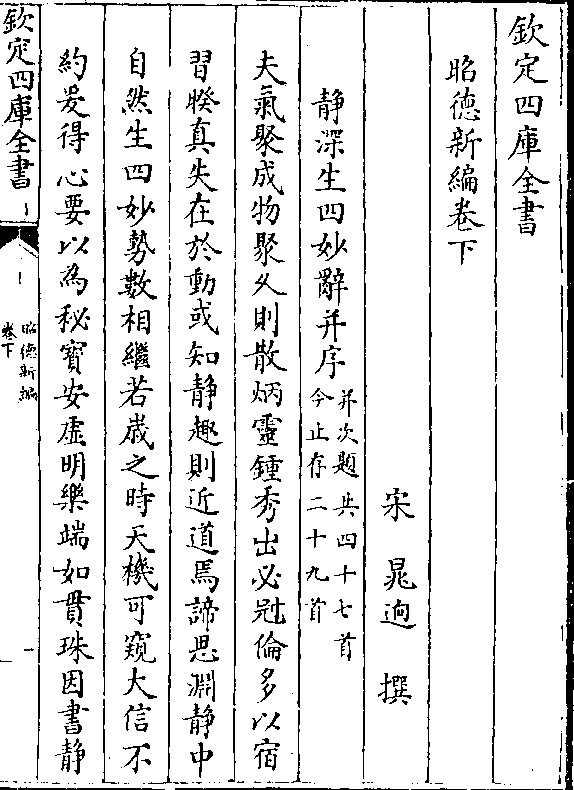 欽定四庫全書
昭德新編卷下
宋 晁迥 撰
静深生四妙辭并序并次題共四十七首今止存二十九首
夫氣聚成物聚久則散炳靈鍾秀出必冠倫多以宿
習暌真失在於動或知静趣則近道焉諦思淵静中
自然生四妙勢數相繼若歲之時天機可窺大信不
約爰得心要以為秘寶安虚明樂端如貫珠因書静
欽定四庫全書
昭德新編
卷下
一